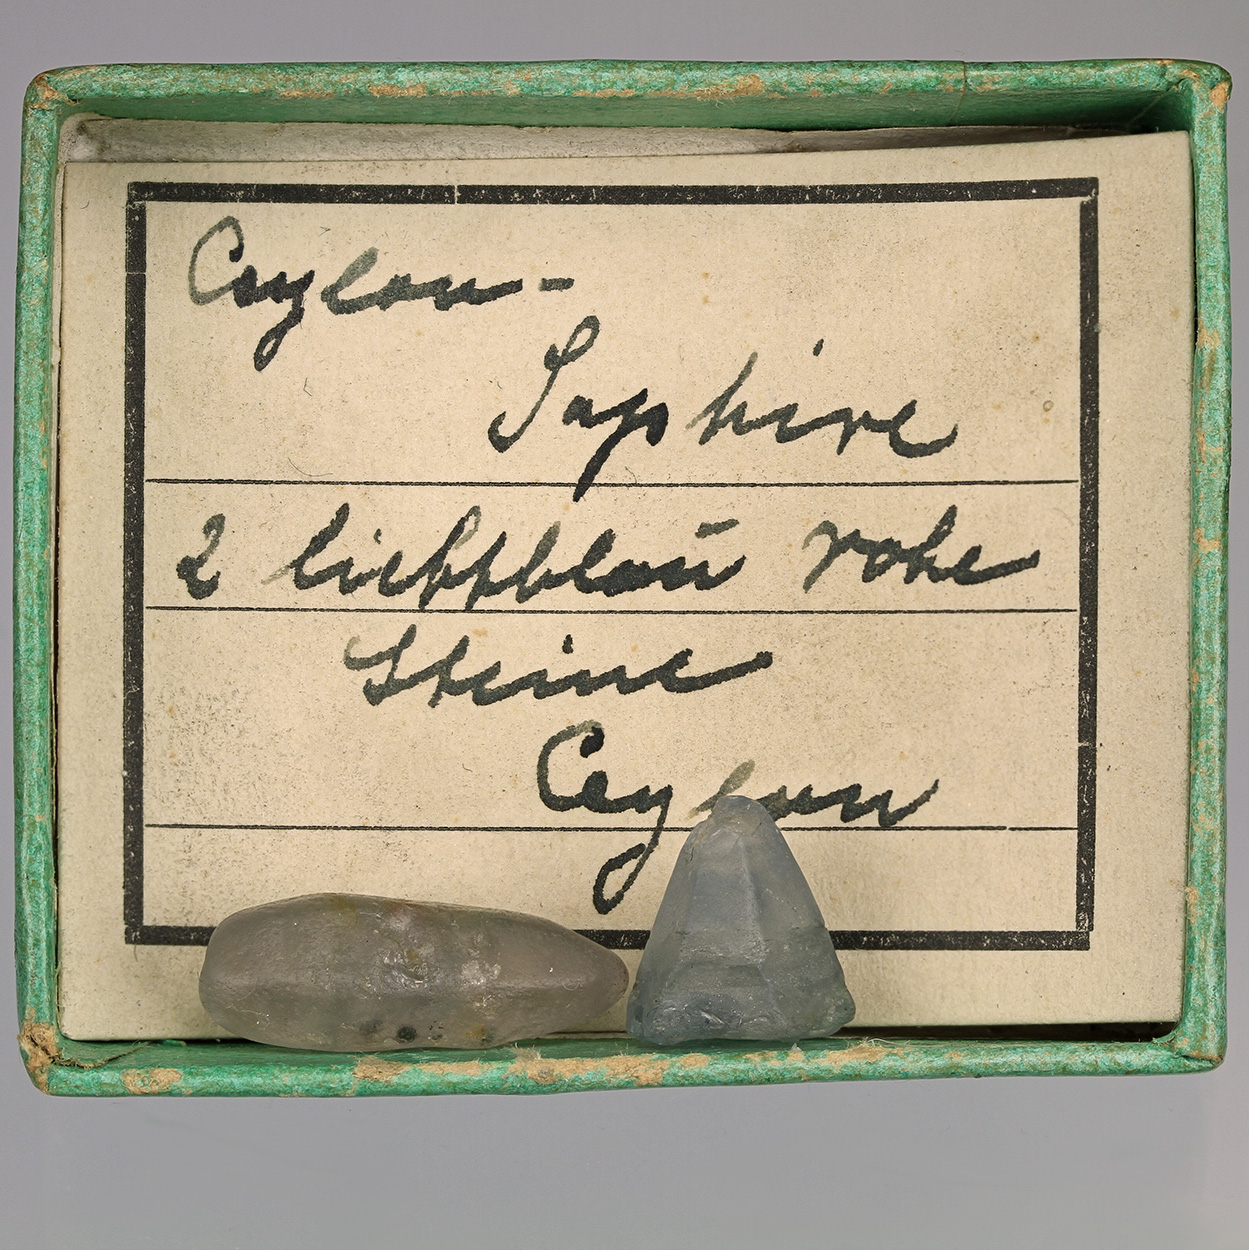 Ceylon-
Saphire
2 lichtblaū rohe
Steine
Ceylon